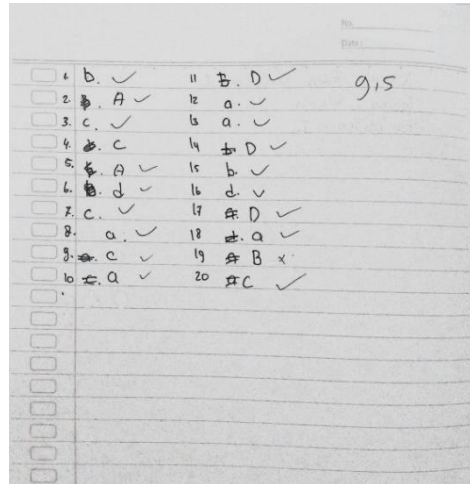 No.
Date:
9,5
1. b. ✓
2. A ✓
3. c. ✓
4. c
5. A ✓
6. d ✓
7. c. ✓
8. a. ✓
9. c ✓
10 a ✓
11 B. D ✓
12 a. ✓
13 a. ✓
14 b D ✓
15 b. ✓
16 d. ✓
17 D ✓
18 d. a ✓
19 B x
20 C ✓